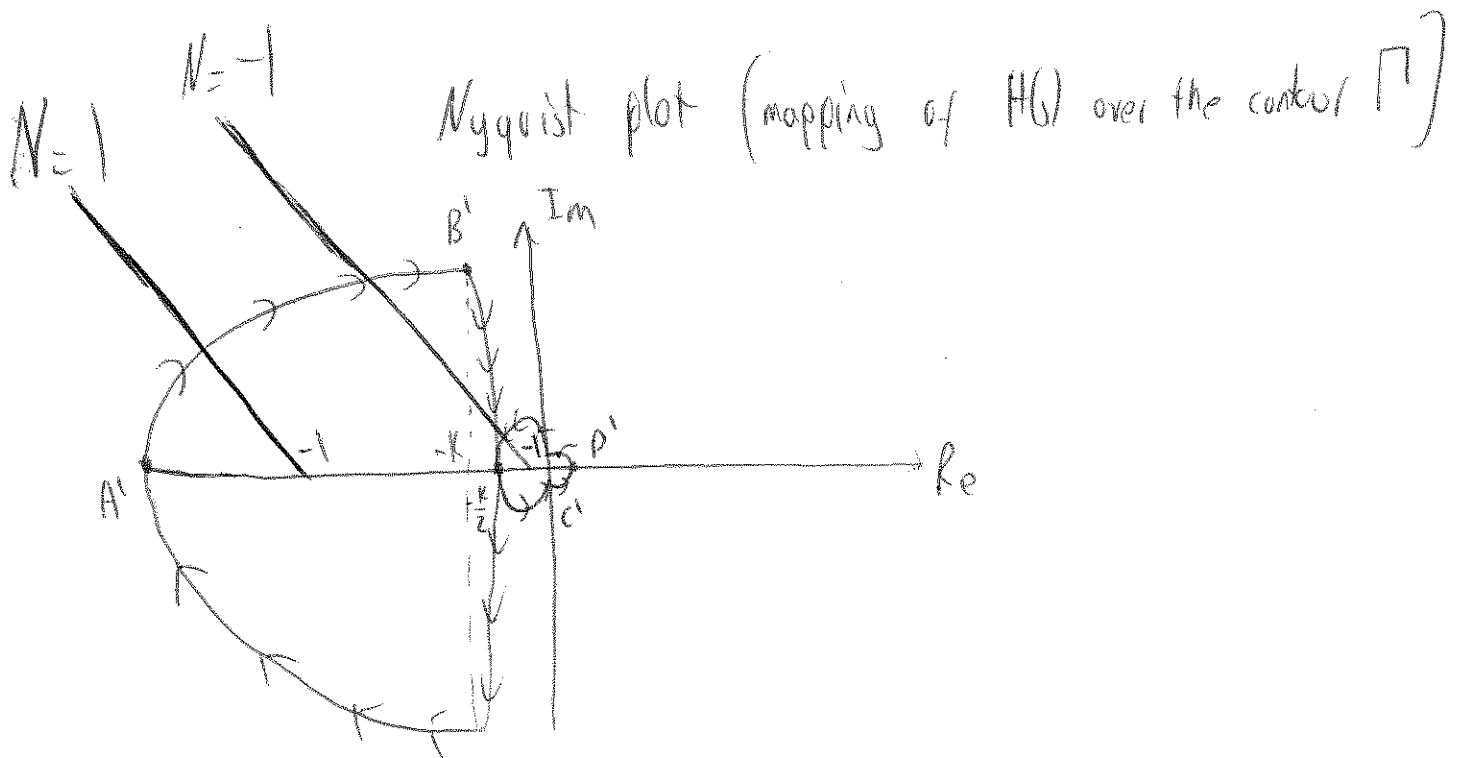 N = -1
N = 1
Nyquist plot (mapping of H(s) over the contour Γ)
Im
B'
-1
-K
-1
D'
Re
A'
-K/2
C'